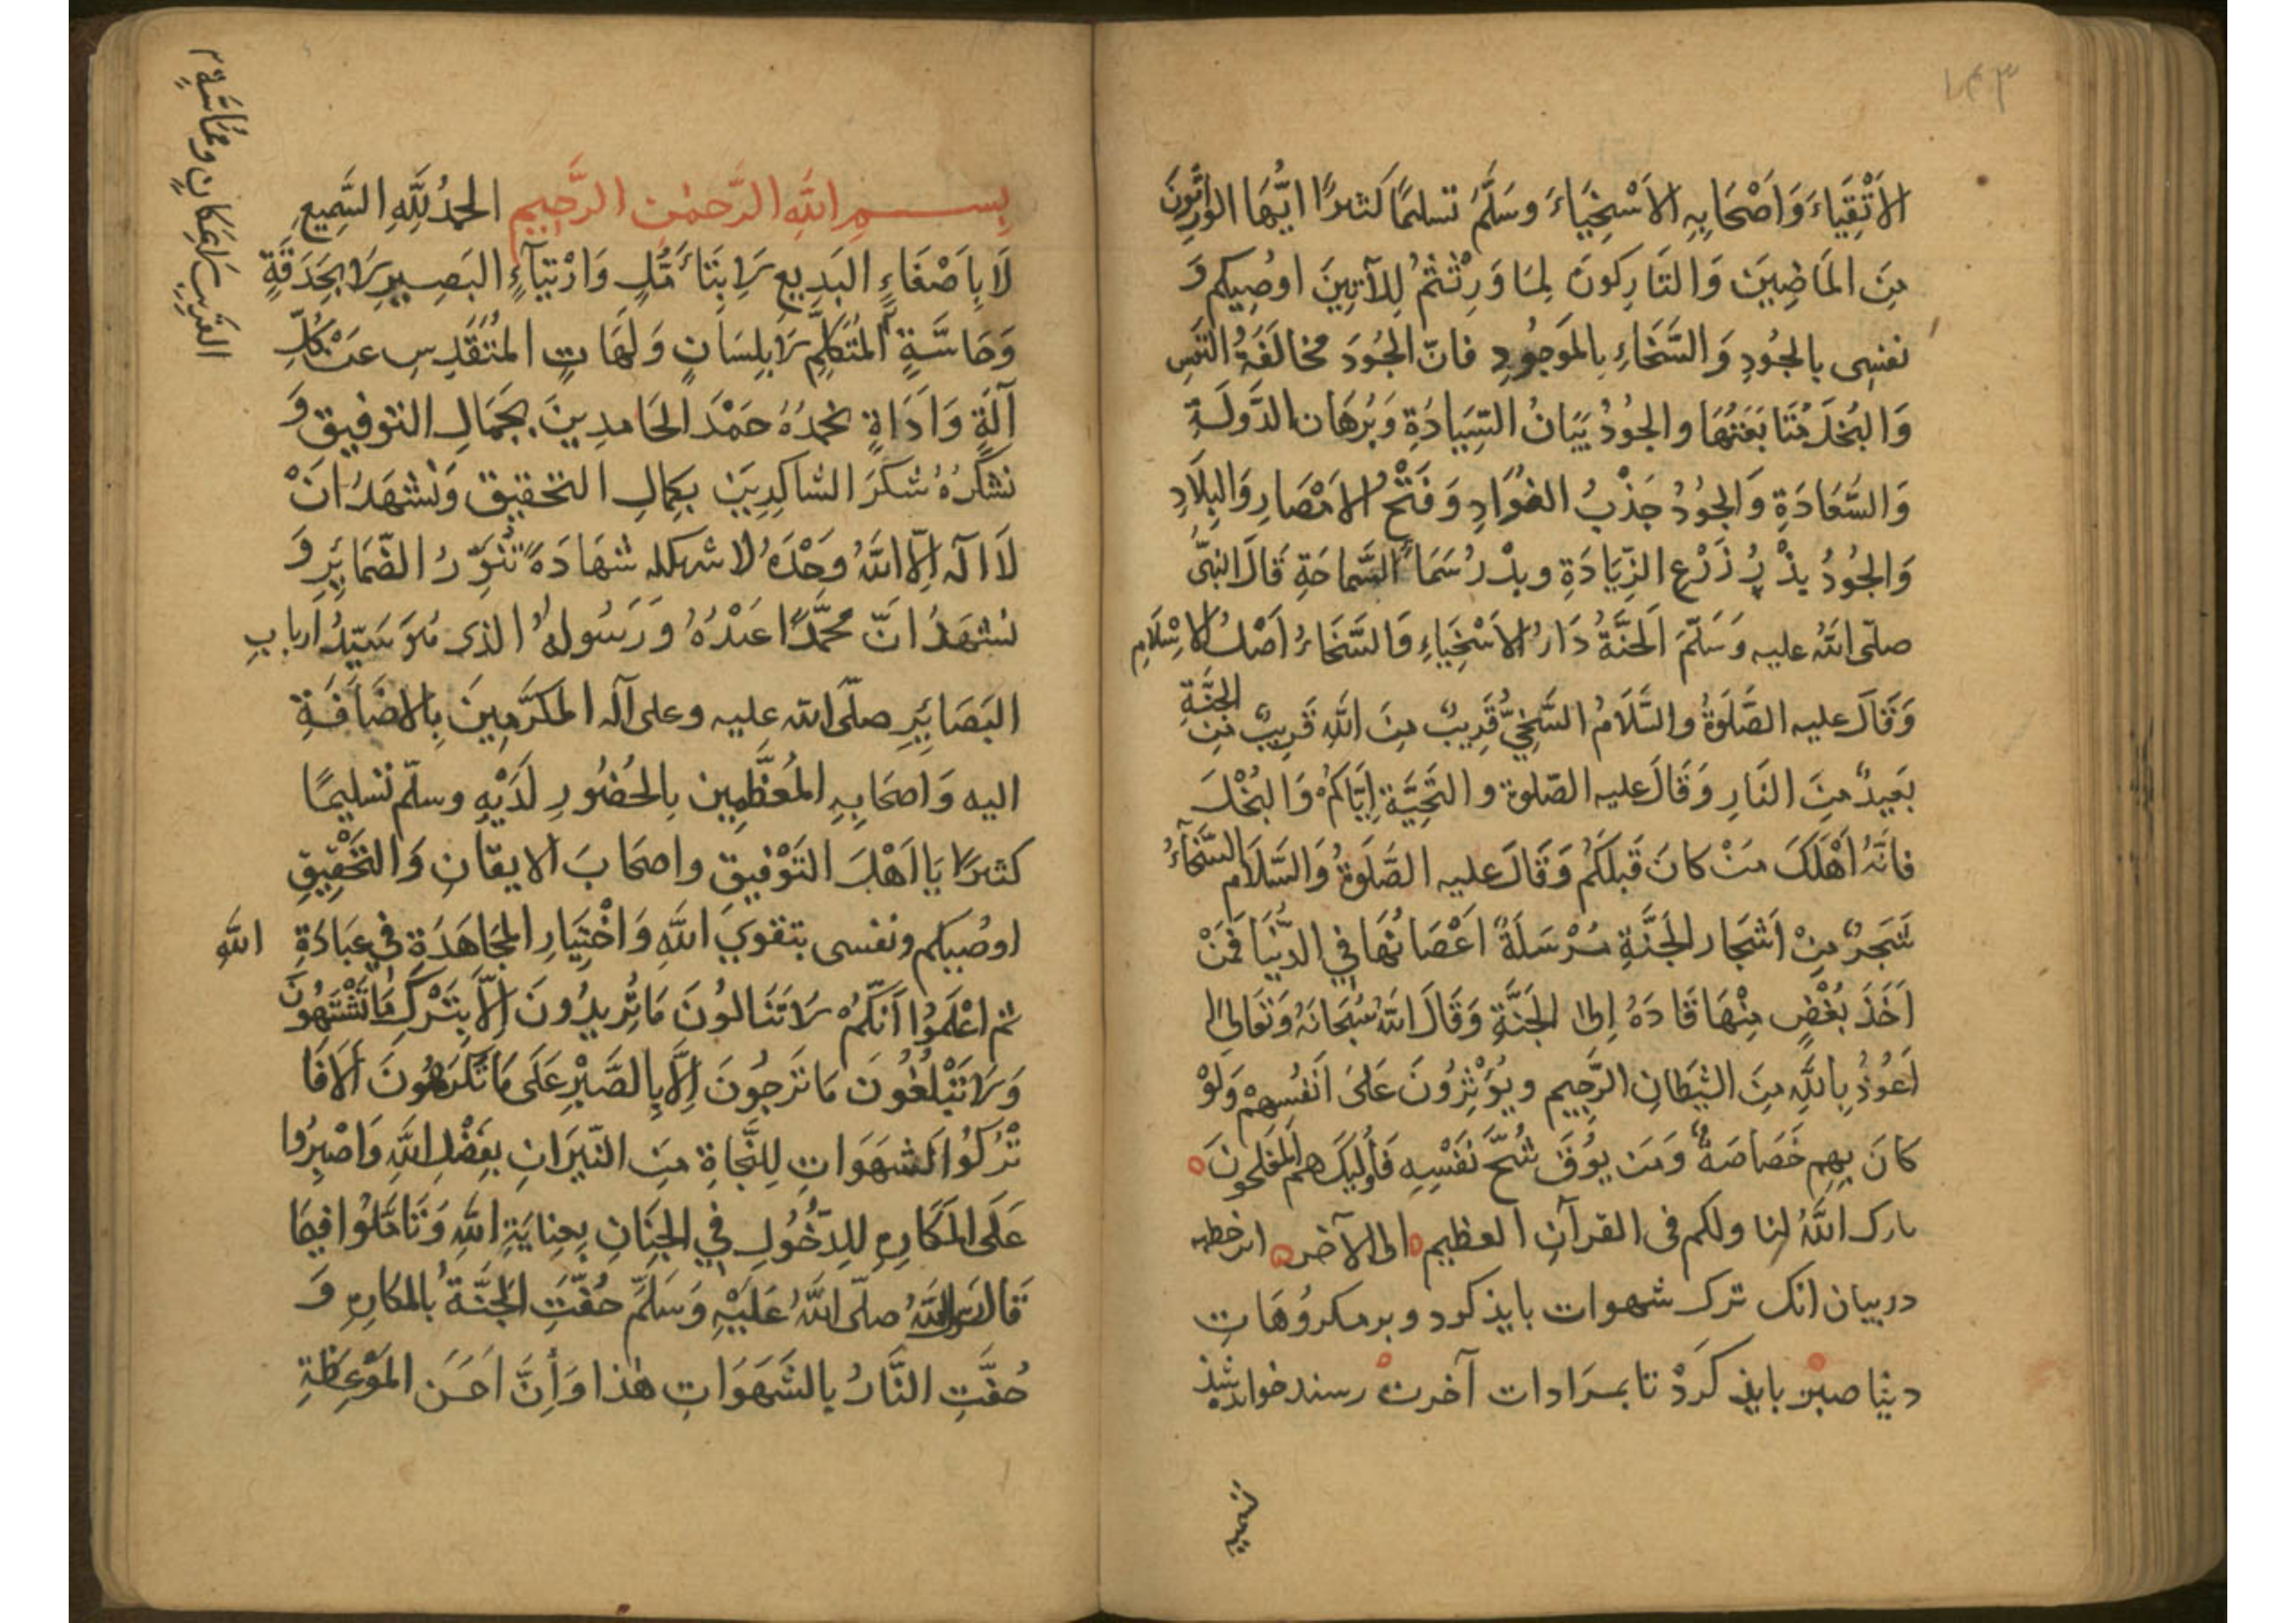 ١٤٣
الاَتْقِيَاءَ وَاَصْحَابِهِ الاَسْخِيَاءَ وسَلَّمَ تسليمًا كَثيرًا ايُّهَا الوَارِثُونَ
مِنَ المَاضِيينَ وَالتَارِكونَ لِمَا وَرِثْتُمْ لِلآتِينَ اوصُيكم وَ
نفسِى بالجُودِ وَالسَّخَاءِ بِالمَوجُودِ فانّ الجُودَ مخالَفَةُ النَّفسِ
وَالبُخلَ مُتَابَعَتُهَا والجُودُ بَيَانُ السِّيَادَةِ وَبُرهَان الدَّولَةِ
وَالسَّعَادَةِ وَالجُودُ جَذْبُ الفُوَادِ وَفَتْحُ الاَمْصَارِ وَالبِلَادِ
وَالجُودُ بذْرُ زَرْعِ الزِّيَادَةِ وبدْرُ سَمَاءِ السَّماحَةِ قَالَ النبىُّ
صلّى اللهُ عليه وَسَلّمَ اَلجَنَّةُ دَارُ الاَسْخِيَاءِ وَالسَّخَاءُ اَصْلُ الاِسْلَامِ
وَقَالَ عليه الصَّلَوةُ والسَّلَامُ السَّخِيُّ قَرِيبٌ مِنَ اللهِ قَرِيبٌ مِنَ الجَنَّةِ
بَعِيدٌ مِنَ النَارِ وَقَالَ عليه الصّلوة والتَّحِيَّة اِيَّاكُمْ وَالبُخْلَ
فانَّهُ اَهْلَكَ مَنْ كانَ قَبلَكُم وَقَالَ عليه الصَّلَوةُ وَالسَّلَام السَّخَآءُ
شَجَرٌ مِنْ اَشجَار الجَنَّةِ مُرْسَلَةً اَغْصَانُهَا فِي الدُّنيَا فَمَنْ
اَخَذَ بُغْضٍ مِنْهَا قَادَهُ اِلىٰ الجَنَّةِ وَقَالَ اللهُ سُبْحَانَهُ وَتَعَالىٰ
اَعُوذُ بِاللهِ مِنَ الشيَطَانِ الرَّجِيمِ ويُوْثِرُونَ عَلىٰ اَنْفُسِهِمْ وَلَوْ
كانَ بِهِم خَصَاصَةٌ وَمَن يوُقَ شُحَّ نَفْسِهِ فَأُولَئِكَ هم المُفلحونَ
بارك اللهُ لنا ولكم فى القرآنِ العظيم الى الآخر اين خطبه
در بيان انك ترك شهوات بايذ كرد و بر مكروُهَات
دينا صبر بايذ كَردْ تا بمرَادات آخرت رسند خوانده شذ
بِســـمِ اللهِ الرَّحمٰنِ الرَّحِيمِ الحمدُ لِلّهِ السَّمِيعِ
لَا بِاَصْغَاءٍ البَدِيعِ لَا بِتَأَمُّلٍ وَارْتيَآءٍ البَصِيرِ لَا بِحَدَقَةٍ
وَحَاسَّةٍ المُتَكَلِّمِ لَا بِلِسَانٍ وَلَهَاتٍ المُتَقَدِسِ عَنْ كُلِّ
آلَةٍ وَاَدَاةٍ نحمدُهُ حَمْدَ الحَامدِينَ بجَمَالِ التوفيق وَ
نشكرُهُ شكرَ الشاكرِينَ بكمالِ التحقيق وَنَشهَدُ اَنْ
لَا الٓهَ اِلّا اللهُ وَحْدَهُ لا شريك له شهَادَةً تُنَوِّرُ الضَّمَائِرِ وَ
نشهَدُ انَّ محمَّدًا عبْدُهُ وَرَسُولهُ الذى هُوَ سَيّدُ ارباب
البَصَائِرِ صلّى الله عليه وعلى آله المكَرَّمِينَ بِالاضَافَةِ
اليه وَاصحَابِهِ المُعَظَّمِين بِالحُضُورِ لَدَيْهِ وسلّم تسليمًا
كثيرًا يَا اَهْلَ التَوْفيق واصحَابَ الايقانِ وَالتَحْقِيقِ
اوصُيكم ونفسى بتقوَى اللهِ وَاخْتِيَارِ المُجَاهَدَةِ فِي عِبَادَةِ اللهِ
ثم اعْلَمُوا اَنّكُمْ لَا تَنَالُونَ مَا تُرِيدُونَ اِلّا بِتَرْكِ مَا تَشْتَهُونَ
وَلَا تَبْلُغُونَ مَا تَرجُونَ اِلَّا بِالصَّبْرِ عَلَى مَا تَكْرَهُونَ اَلَا فَا
تْرُكُوا الشهَوَاتِ لِلنَّجَاةِ مِنَ النّيرَانِ بِفَضْلِ اللهِ وَاصْبِرُوا
عَلَى المَكَارِهِ لِلدّخُولِ فِي الجِنَانِ بِعِنايَةِ اللهِ وَتَأمَّلُوا فيمَا
قَالَ رَسُولُ اللهُ صلّى اللهُ عَلَيْهِ وَسَلّمَ حُفَّتِ الجَنَّةُ بالمكارِهِ وَ
حُفَّتِ النَّارُ بِالشَهَوَاتِ هٰذا وَاِنَّ اَحسَن المَوْعِظَةِ